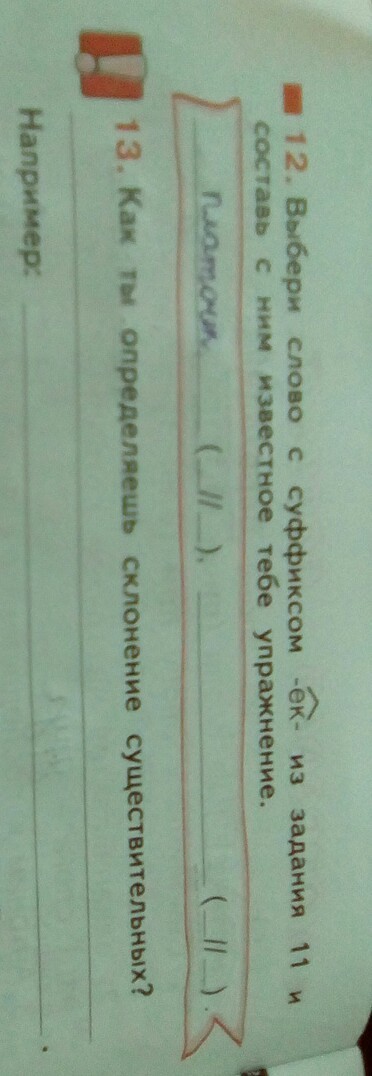 12. Выбери слово с суффиксом -ек- из задания 11 и
составь с ним известное тебе упражнение.
(_//_), (_//_).
13. Как ты определяешь склонение существительных?
Например: .